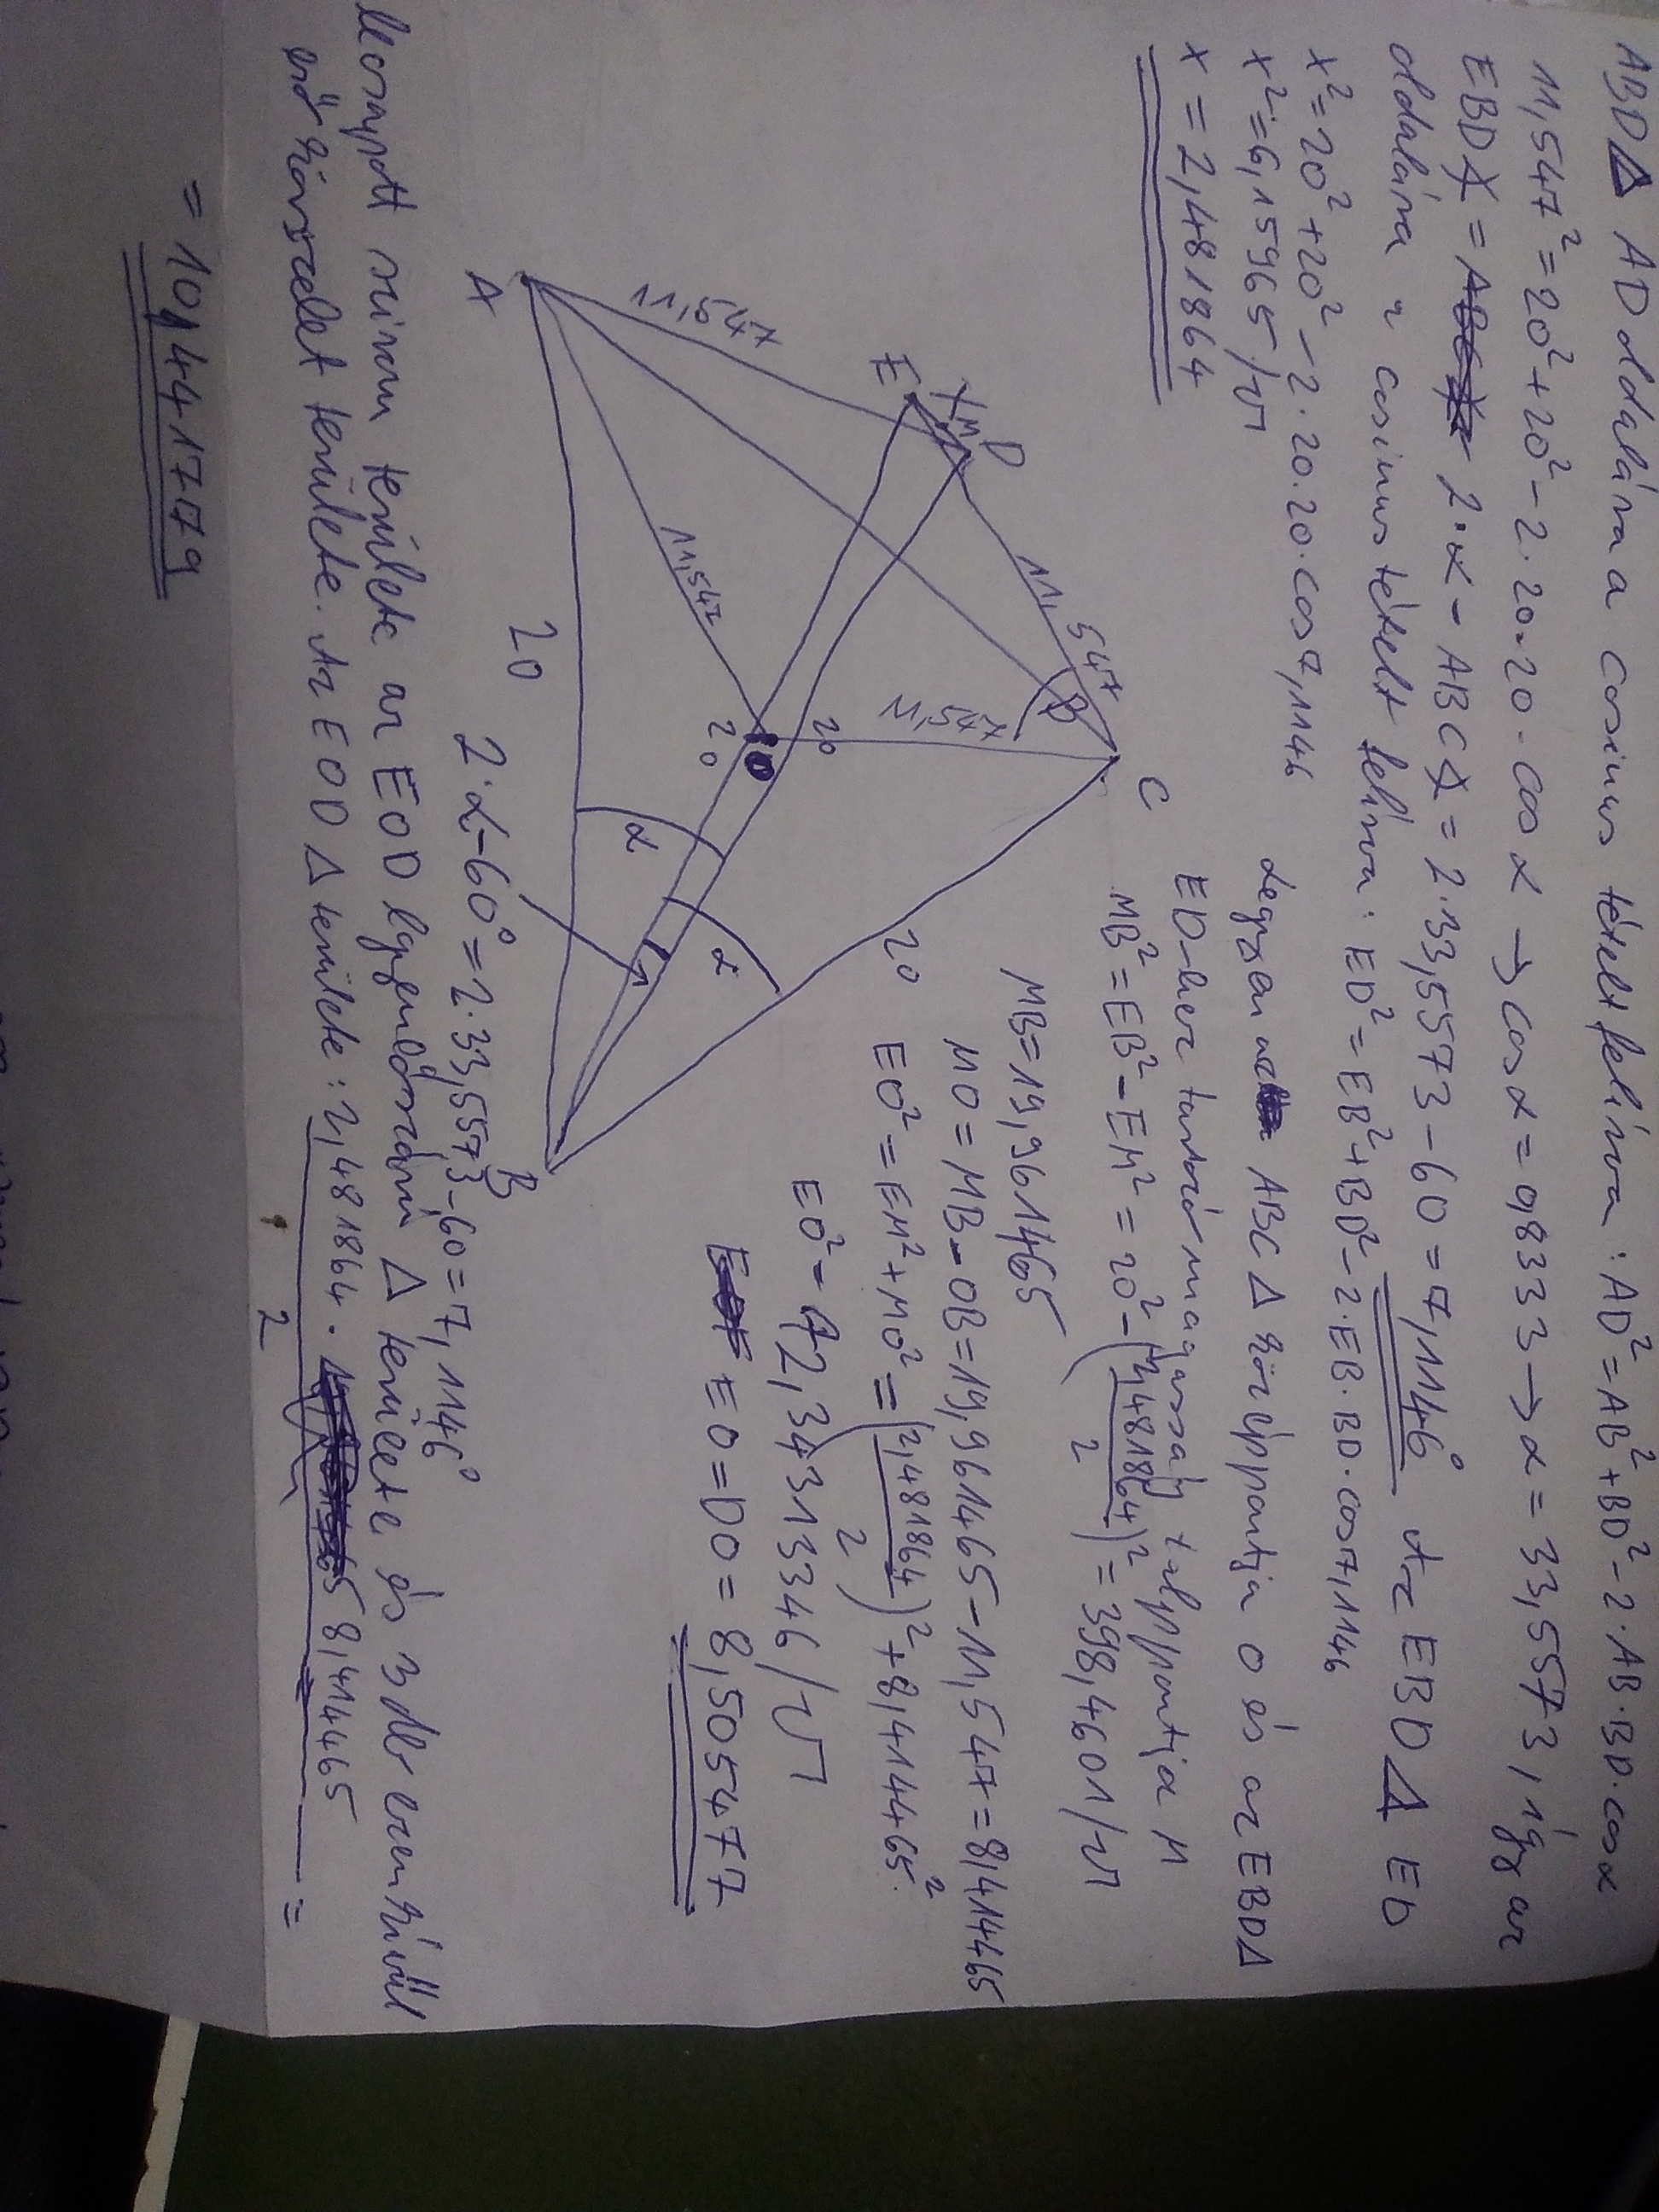 ABD△ AD oldalára a cosinus tételt felírva: AD² = AB² + BD² - 2·AB·BD·cosα
11,547² = 20² + 20² - 2·20·20·cosα → cosα = 0,8333 → α = 33,5573, így az
EBD∡ = 2·α - ABC∡ = 2·33,5573 - 60 = 7,1146° Az EBD△ ED
oldalára a cosinus tételt felírva: ED² = EB² + BD² - 2·EB·BD·cos7,1146
x² = 20² + 20² - 2·20·20·cos7,1146
x² = 6,15965 /√
x = 2,481864
Legyen az ABC△ középpontja O és az EBD△
ED-hez tartozó magasság talppontja M
MB² = EB² - EM² = 20² - (2,481864/2)² = 398,4601 /√
MB = 19,961465
MO = MB - OB = 19,961465 - 11,547 = 8,414465
EO² = EM² + MO² = (2,481864/2)² + 8,414465²
EO² = 72,34313346 /√
EO = DO = 8,505477
C
D
M
X
E
11,547
11,547
11,547
11,547
20
20
20
20
O
α
α
A
B
2·α-60° = 2·33,5573-60 = 7,1146°
területe az EOD egyenlőszárú △ területe és 3 db ezen kívül
eső körszelet területe. Az EOD△ területe: 2,481864 · 8,414465 / 2 =
= 10,4417179